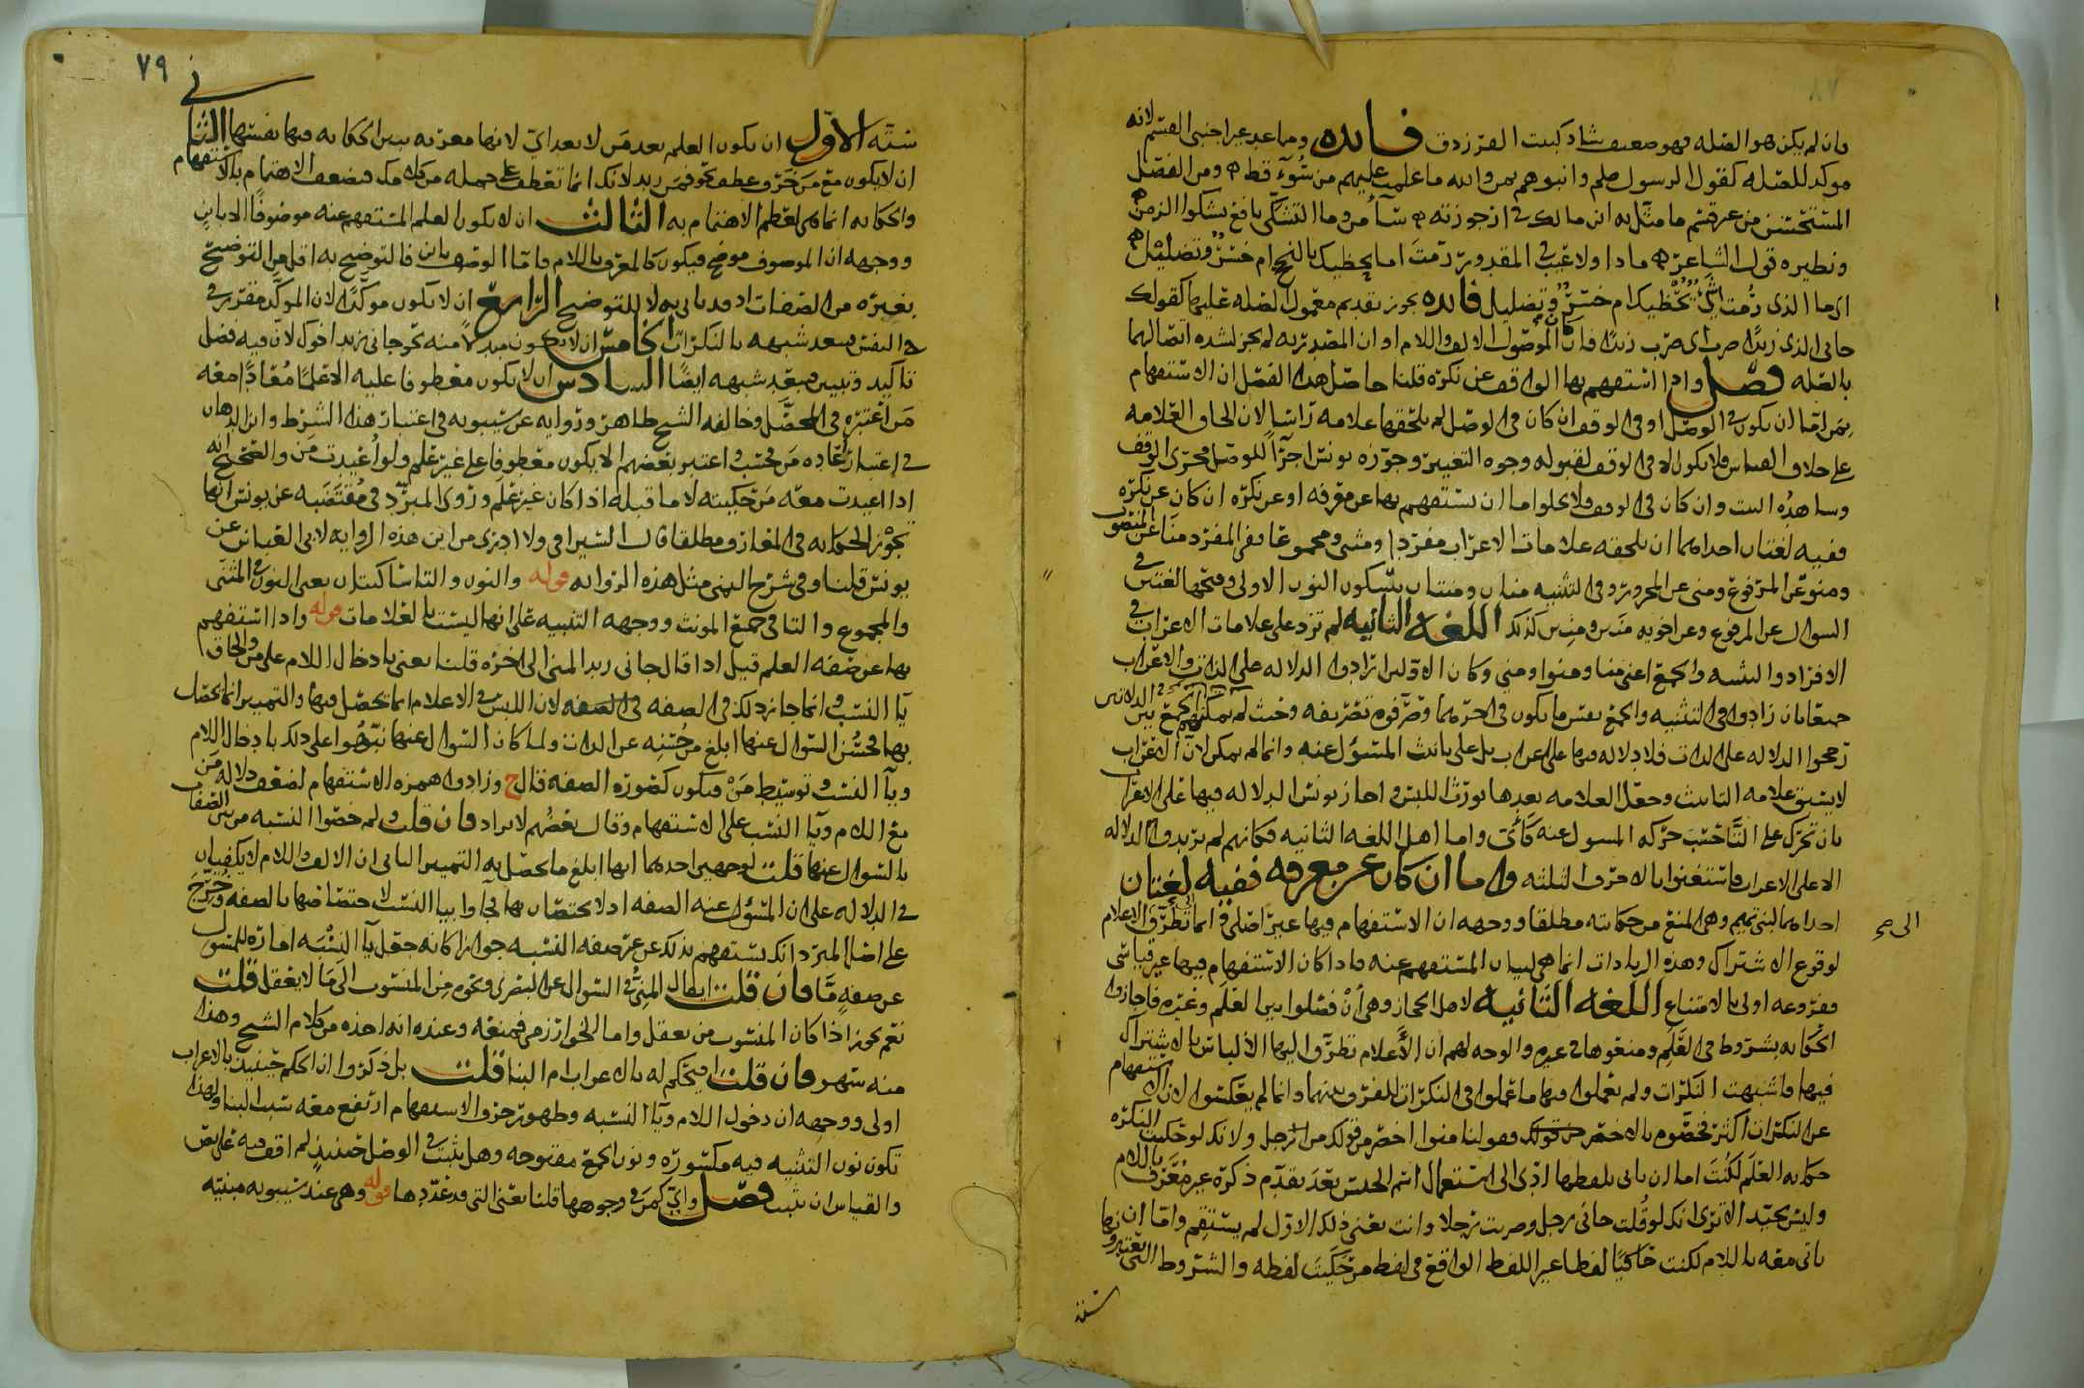 وان لم يكن هو الصله فهو ضعيف شاذ كبيت الفرزدق فايده وما عد غير اجنبي القسم لانه
موكد للصله كقول الرسول صلم وابنوهم بمن والله ما علمت عليهم من سُوء قط ومن الفصل
المستحسن من غير قسم ما مثل به ابن مالك في ارجوزته وما التشكي نافع يشكوا الزمن
ونظيره قول الشاعر ماذا ولا عتب في المقدور رمت اما يحظيك بالنجح ام خسر وتضليل
اى ما الذى رُمت ايحظيك ام خسر وتضليل فايده يجوز تقديم معمول الصله عليها كقولك
جانى الذى زيدًا ضرب اى ضرب زيدًا فان كان الموصول الالف واللام او ان المصدريه لم يجز لشده اتصالهما
بالصله فصل واذا استفهم بها الواقف عن نكرة قلنا حاصل هذا الفصل ان الاستفهام
بمن اما ان يكون في الوصل او في الوقف ان كان في الوصل لم يلحقها علامه راسا لان الحاق العلامه
على خلاف القياس فلا يكون الا في الوقف لقبوله وجوه التغيير وجوزه يونس اجرآً للوصل مجرى الوقف
وشاهده البيت وان كان في الوقف فلا يخلوا اما ان يستفهم بها عن معرفه او عن نكره ان كان عن نكره
ففيه لغتان احداهما ان يلحقه علامات الاعراب مفردا ومثنى ومجموعا ففي المفرد منا عن المنصوب
ومنو عن المرفوع ومنى عن المجرور وفي التثنيه منان ومنتان بسكون النون الاولى وفتحها لغتين في
السوال عن المرفوع وعن اخويه منين ومنتين كذلك اللغه الثانيه لم تزد على علامات الاعراب في
الافراد والتثنيه والجمع اعنى منا ومنوا ومنى وكان الاولين ارادوا الدلاله على الذات والاعراب
جميعا بان زادوا في التثنيه والجمع نفس ما يكون في اخرهما وصرفوه تصريفه وحيث لم يمكنهم الجمع بين الدلالتين
رجحوا الدلاله على الذات فلا دلاله فيها على الاعراب بل على تانيث المسئول عنه وانما لم يمكن لان الاعراب
لا يسبق علامه التانيث وجعل العلامه بعدها يورث اللبس واجاز يونس الدلاله فيها على الاعراب
بان تحرك على التا حسب حركه المسول عنه كاى واما اهل اللغه الثانيه فكانهم لم يريدوا الدلاله
الا على الاعراب فاستغنوا بالاحرف الثلثه واما ان كان عن معرفه ففيه لغتان
احداهما لبنى تميم وهى المنع من حكايته مطلقا ووجهه ان الاستفهام فيها غير اصلى انما تطرق الى الاعلام
لوقوع الاشتراك وهذه الزيادات انما هى لبيان المستفهم عنه فاذا كان الاستفهام فيها غير قياسى
ففروعه اولى بالامتناع اللغه الثانيه لاهل الحجاز وهى ان فصلوا بين العلم وغيره فاجازوا
الحكايه بشروط في العَلم ومنعوها في غيره والوجه لهم ان الاعلام تطرق اليها الالباس بالاشتراك
فيها فاشبهت النكرات ولم يعملوا فيها ما عملوا في النكرات للفرق بينهما وانما لم يعكسوا لان الاستفهام
عن النكرات اكثر فخصوه بالاخصر فقولنا منوا اخصر من قولك من الرجل ولانك لو حكيت النكره
حكايه العَلَم لكنت اما ان ياتى بلفظها ادى الى استعمال اسم الجنس بعد تقدم ذكره غير معرف باللام
وليس بجيد الا ترى انك لو قُلت جانى رجل وضربت رجلا وانت تعنى ذلك الاول لم يستقم واما ان
ياتى معه باللام لكنت حاكيًا لفظا غير اللفظ الواقع في لفظ من حكيت لفظه والشروط التى يعتبرونها
سته
الى ح
٧٩
سته الاول ان يكون العلم بعد مَن لا بعد اىّ لانها معربه يبين الحكايه فيها بقبحها الثانى
ان لا يكون مع مَن حرف عطف نحو فمَن زيد لانك انما تعطف على جمله من كلامك فيضعف الاهتمام بالاستفهام
والحكايه انما هى لعظم الاهتمام به الثالث ان لا يكون العلم المستفهم عنه موصوفًا الا بابن
ووجهه ان الموصوف موضح فيكون كالمعرف باللام واما الوصف بابن فالتوضيح به اقل من التوضيح
بغيره من الصفات اذ قد ياتى به لا للتوضيح الرابع ان لا يكون موكدًا لان الموكد مقرر في
النفس فبعد شبهه بالنكرات الخامس ان لا يكون بدلا منه نحو جانى زيد اخوك لان فيه فضل
تاكيد وتبيين فبعد شبهه ايضًا السادس ان لا يكون معطوفا عليه الا علمًا مُعادًا معه
مَن اعتبره في المحصّل وخالفه الشيخ طاهر ورُوايه عن سيبويه في اعتبار هذا الشرط وابن الدهان
في اعتبار اعاده مَن فحسب واعتبر بعضهم الا يكون معطوفا على غير علم ولو اُعيدت مَن والصحيح انه
اذا اعيدت معه من حكيته لا ما قبله اذا كان غير علم وروى المبرّد في مُقتضبه عن يونس انها
تجوّز الحكايه في المعارف مطلقا قال السيرافى ولا ادرى من اين هذه الروايه لابى العباس عن
يونس قلنا وفي شرح اليمنى مثل هذه الروايه قوله والنون والتا ساكنتان يعنى النون في المثنى
والمجموع والتا في جمع المونث ووجهه التنبيه على انها ليست بالعلامات قوله واذا استفهم
بها عن صفه العلم قيل اذا قال جانى زيد المنى الى اخره قلنا يعنى بادخال اللام على من والحاق
يآ النسب وانما جاز ذلك في الصفه لان اللبس في الاعلام انما يحصل فيها والتمييز انما يحصل
بها فحسُن السوال عنها ابلغ من حسنه عن الذات ولما كان السوال عنها نبّهوا على ذلك بادخال اللام
ويآ النسب وتوسيط مَنْ فيكون كصوره الصفه قال ح وزادوا همزه الاستفهام لضعف دلاله مَن
مع اللام ويآ النسب على الاستفهام وقال بعضُهم لا يراد فان قلت لم خصّوا النسبه من بين الصفات
بالسوال عنها قلت لوجهين احدهما انها ابلغ ما يحصل به التمييز الثانى ان الالف واللام لا يكفيان
في الدلاله على ان المسئول عنه الصفه اذ لا يختصان بها فجآوا بيا النسب لاختصاصها بالصفه وخرّج
على اصل المبرّد انك يستفهم بذلك عن غير صفه النسبه جوازا كانه جعل يآ النِسبَه اماره للمسول
عن صفهٍ مّا فان قلت ايطال المنىُّ في السوال عن البصرى ونحوه من المنسوب الى ما لا يعقل قلت
نعم يجوز اذا كان المنسوب من يعقل واما الخوارزمى فمنعه وعنده انه اخذه من كلام الشيخ وهذا
منه سهو فان قلت افيحكم له بالاعراب ام البنا قلت بل ذكروا ان الحكم حينيذ بالاعراب
اولى ووجهه ان دخول اللام ويآ النسبه وظهور حرف الاستفهام ارتفع معه سبب البنا ولهذا
تكون نون التثنيه فيه مكسوره ونون الجمع مفتوحه وهل يثبت في الوصل حينيذ لم اقف فيه على نص
والقياس ان يثبت فصل واىّ كمَن في وجوهها قلنا يعنى التى قد عدّدها قوله وهى عند سيبويه مبنيّه